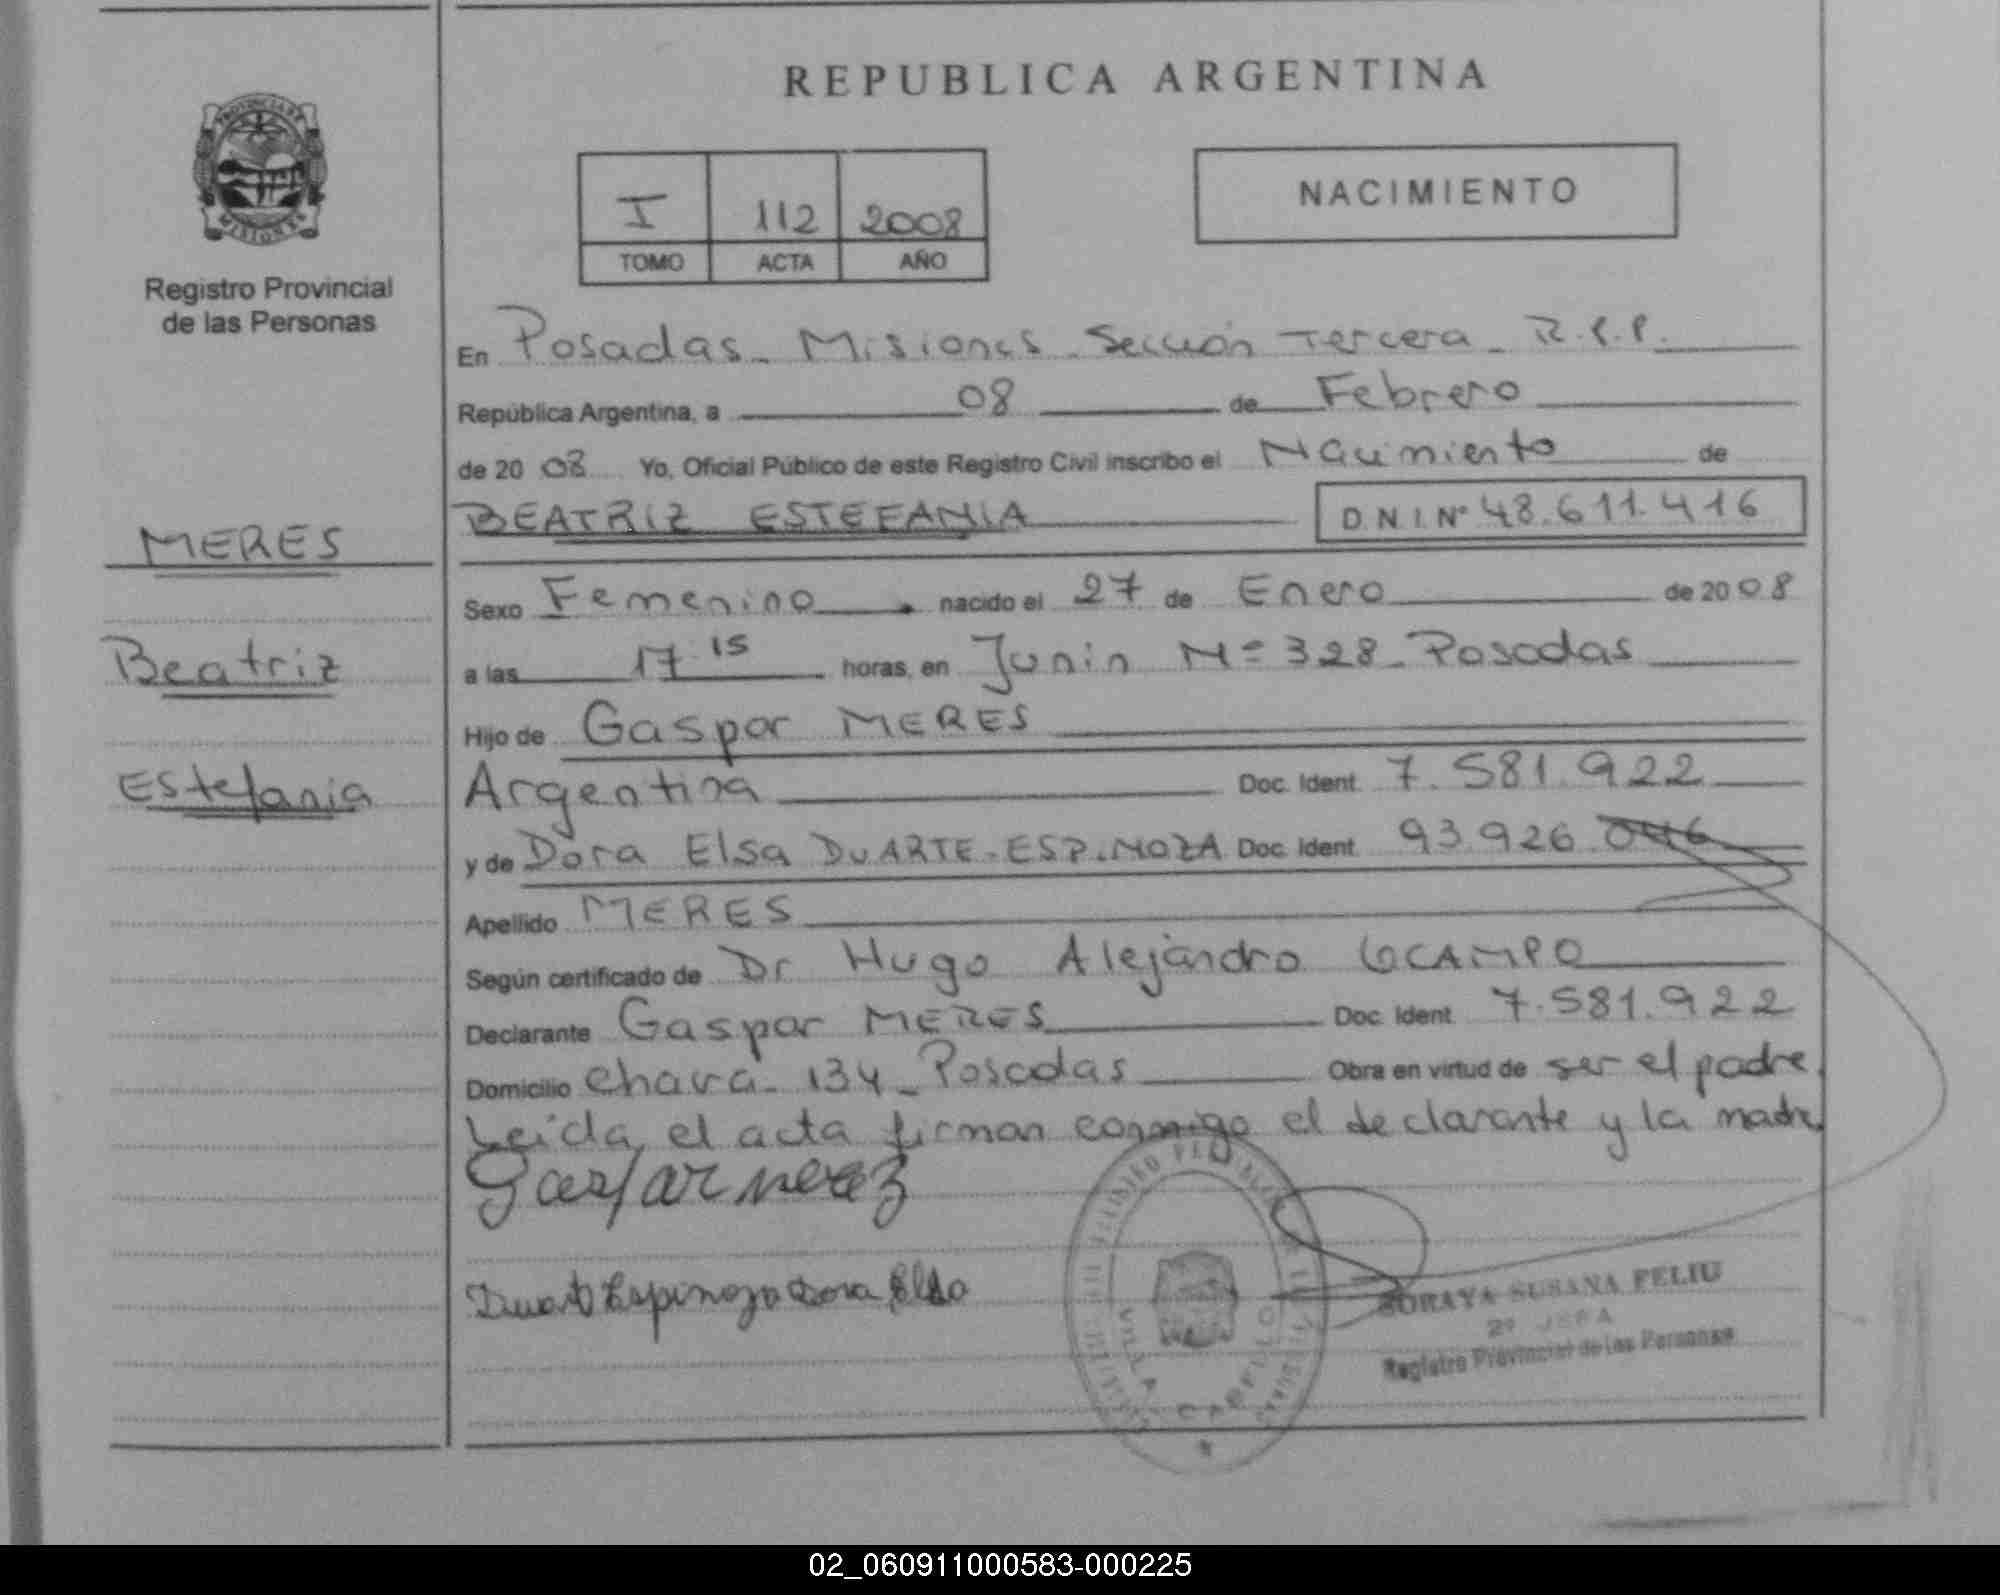 REPUBLICA ARGENTINA
PROVINCIA DE
MISIONES
Registro Provincial
de las Personas
I 112 2008
TOMO ACTA AÑO
NACIMIENTO
En Posadas - Misiones - Sección Tercera - R.P.P.
República Argentina, a 08 de Febrero
de 2008 Yo, Oficial Público de este Registro Civil inscribo el Nacimiento de
BEATRIZ ESTEFANIA D.N.I. Nº 48.611.416
MERES
Beatriz
Estefania
Sexo Femenino nacido el 27 de Enero de 2008
a las 17.15 horas, en Junin Nº 328 - Posadas
Hijo de Gaspar MERES
Argentina Doc. Ident. 7.581.922
y de Dora Elsa DUARTE - ESPINOZA Doc. Ident. 93.926.046
Apellido MERES
Según certificado de Dr Hugo Alejandro OCAMPO
Declarante Gaspar MERES Doc. Ident. 7.581.922
Domicilio 134 - Posadas Obra en virtud de ser el padre.
Leida el acta firman conmigo el declarante y la madre.
Gaspar merez
Duarte Espinoza Dora Elsa
VILLA CABELLO
SORAYA SUSANA FELIU
2º JEFA
Registro Provincial de las Personas
02_060911000583-000225